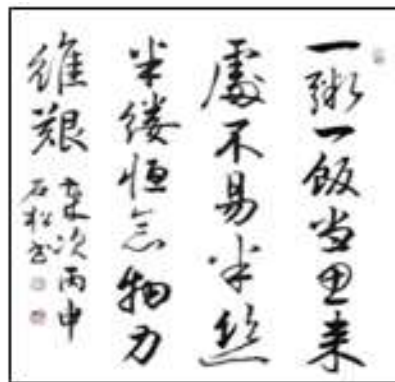 一粥一飯当思来
處不易半丝
半缕恒念物力
維艱
歲次丙申
石松書